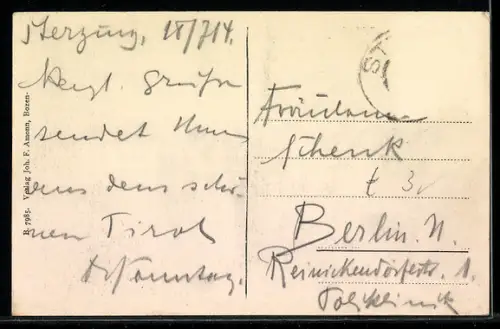 Sterzing, 18/7 14.
Herzl. Grüße
sendet Ihnen
aus dem schö-
nen Tirol
Dr Sonntag.
B. 7985. Verlag Joh. F. Amonn, Bozen.
ST
Fräulein
Schenk
Berlin. N.
Reinickendorferstr. 1.
Poliklinik